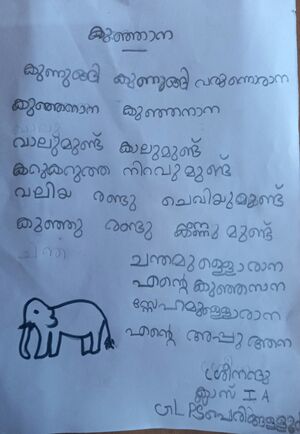 കുഞ്ഞാന
കുണുങ്ങി കുണുങ്ങി വരുന്നൊരാന
കുഞ്ഞനാന കുഞ്ഞനാന
വാലുമുണ്ട് കാലുമുണ്ട്
കറുകറുത്ത നിറവുമുണ്ട്
വലിയ രണ്ടു ചെവിയുമുണ്ട്
കുഞ്ഞു രണ്ടു കണ്ണുമുണ്ട്
ചന്തമുള്ളൊരാന
എന്റെ കുഞ്ഞനാന
സ്നേഹമുള്ളൊരാന
എന്റെ അപ്പു ആന
ശ്രീനന്ദു
ക്ലാസ് I A